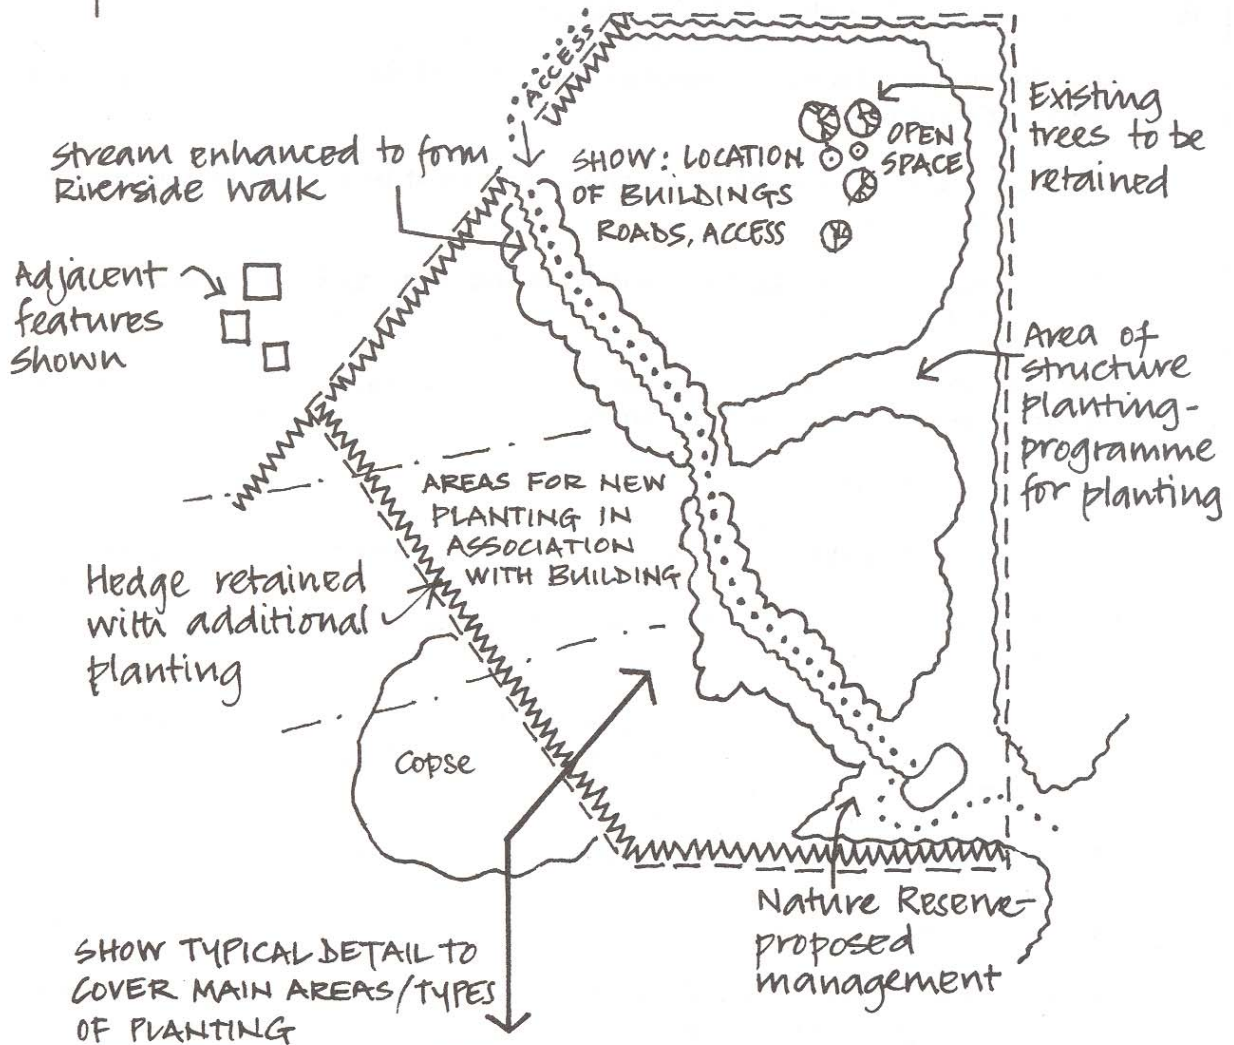 ACCESS
Stream enhanced to form
Riverside walk
SHOW: LOCATION
OF BUILDINGS
ROADS, ACCESS
OPEN
SPACE
Existing
trees to be
retained
Adjacent
features
shown
Area of
structure
planting-
programme
for planting
AREAS FOR NEW
PLANTING IN
ASSOCIATION
WITH BUILDING
Hedge retained
with additional
planting
Copse
Nature Reserve-
proposed
management
SHOW TYPICAL DETAIL TO
COVER MAIN AREAS/TYPES
OF PLANTING